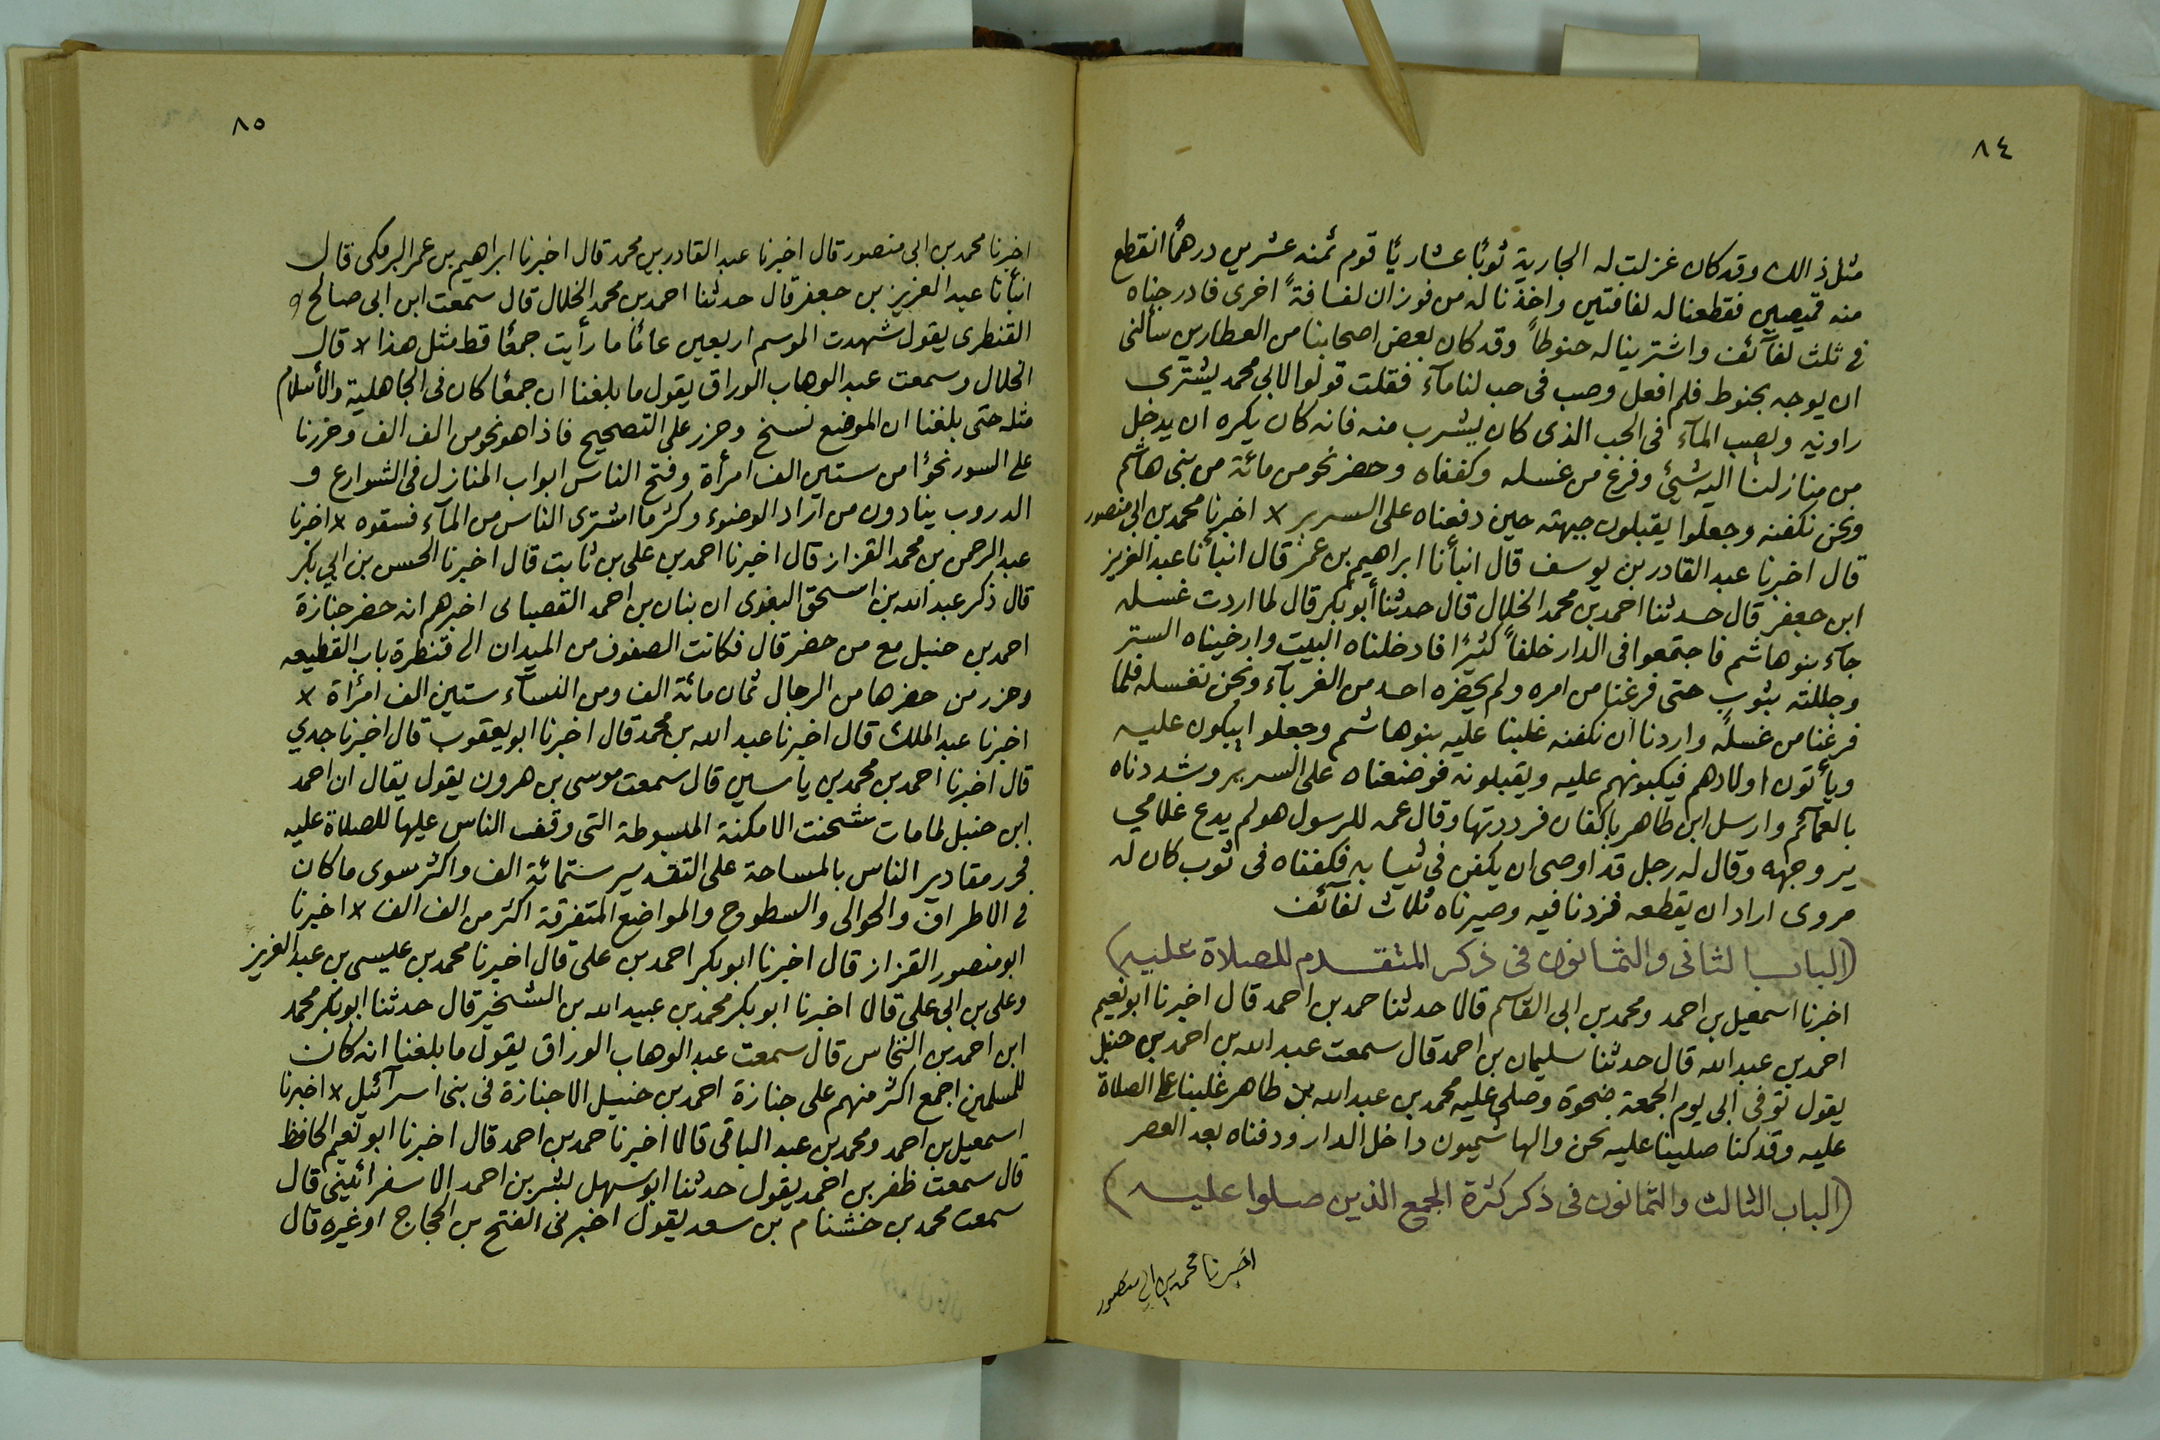 ٨٤
مثل ذالك وقد كان غزلت له الجارية ثوبًا عشاريًا قوم ثمنه عشرين درهمًا انقطع
منه قميصين فقطعنا له لفافتين واخذنا له من فوزان لفافةً اخرى فادرجناه
فى ثلث لفآئف واشترينا له حنوطاً وقد كان بعض اصحابنا من العطارين سألنى
ان يوجه بحنوط فلم افعل وصب فى حب لنا مآء فقلت قولوا لابي محمد يشترى
راوية ويصب المآء فى الحب الذى كان يشرب منه فانه كان يكره ان يدخل
من منازلنا اليه شيئ وفرغ من غسله وكفناه وحضر نحو من مائة من بنى هاشم
ونحن نكفنه وجعلوا يقبلون جبهته حين دفعناه على السرير × اخبرنا محمد بن ابي منصور
قال اخبرنا عبد القادر بن يوسف قال انبأنا ابراهيم بن عمر قال انبأنا عبد العزيز
ابن جعفر قال حدثنا احمد بن محمد الخلال قال حدثنا أبو بكر قال لما اردت غسله
جآء بنو هاشم فاجتمعوا فى الدار خلقاً كثيرًا فادخلناه البيت وارخيناه الستر
وجللته بثوب حتى فرغنا من امره ولم يحضره احد من الغربآء ونحن نغسله فلما
فرغنا من غسله واردنا ان نكفنه غلبنا عليه بنو هاشم وجعلوا يبكون عليه
ويأتون اولادهم فيكبونهم عليه ويقبلونه فوضعناه على السرير وشددناه
بالعمآئم وارسل ابن طاهر باكفان فرددتها وقال عمه للرسول هو لم يدع غلامي
يروجهه وقال له رجل قد اوصى ان يكفن فى ثيابه فكفناه فى ثوب كان له
مروى اراد ان يقطعه فزدنا فيه وصيرناه ثلاث لفآئف
(الباب الثانى والثمانون فى ذكر المتقدم للصلاة عليه)
اخبرنا اسمعيل بن احمد ومحمد بن ابى القاسم قالا حدثنا حمد بن احمد قال اخبرنا ابو نعيم
احمد بن عبد الله قال حدثنا سليمان بن احمد قال سمعت عبد الله بن احمد بن حنبل
يقول توفى ابى يوم الجمعة ضحوة وصلى عليه محمد بن عبد الله بن طاهر غلبنا على الصلاة
عليه وقد كنا صلينا عليه نحن والهاشميون داخل الدار ودفناه بعد العصر
(الباب الثالث والثمانون فى ذكر كثرة الجمع الذين صلوا عليه)
اخبرنا محمد بن ابي منصور
٨٥
اخبرنا محمد بن ابى منصور قال اخبرنا عبد القادر بن محمد قال اخبرنا ابراهيم بن عمر البرمكى قال
انبأنا عبد العزيز بن جعفر قال حدثنا احمد بن محمد الخلال قال سمعت ابن ابى صالح
القنطرى يقول شهدت الموسم اربعين عامًا ما رأيت جمعًا قط مثل هذا × قال
الخلال وسمعت عبد الوهاب الوراق يقول ما بلغنا ان جمعًا كان فى الجاهلية والأسلام
مثله حتى بلغنا ان الموضع نسخ وحزر على التصحيح فاذا هو نحو من الف الف وحزرنا
على السور نحوًا من ستين الف امرأة وفتح الناس ابواب المنازل فى الشوارع و
الدروب ينادون من اراد الوضوء وكثر ما اشترى الناس من المآء فسقوه × اخبرنا
عبد الرحمن بن محمد القزاز قال اخبرنا احمد بن على بن ثابت قال اخبرنا الحسن بن ابي بكر
قال ذكر عبد الله بن اسحق البغوى ان بنان بن احمد القصبانى اخبرهم انه حضر جنازة
احمد بن حنبل مع من حضر قال فكانت الصفوف من الميدان الى قنطرة باب القطيعه
وحزر من حضرها من الرجال ثمان مائة الف ومن النسآء ستين الف امرأة ×
اخبرنا عبد الملك قال اخبرنا عبد الله بن محمد قال اخبرنا ابو يعقوب قال اخبرنا جدي
قال اخبرنا احمد بن محمد بن ياسين قال سمعت موسى بن هرون يقول يقال ان احمد
ابن حنبل لما مات مسحت الامكنة المبسوطة التى وقف الناس عليها للصلاة عليه
فحرر مقادير الناس بالمساحة على التقدير ستمائة الف واكثر سوى ما كان
فى الاطراف والحوالى والسطوح والمواضع المتفرقة اكثر من الف الف × اخبرنا
ابو منصور القزاز قال اخبرنا ابو بكر احمد بن على قال اخبرنا محمد بن عليسى بن عبد العزيز
وعلى بن ابى على قالا اخبرنا ابو بكر محمد بن عبيد الله بن الشخير قال حدثنا ابو بكر محمد
ابن احمد بن النخاس قال سمعت عبد الوهاب الوراق يقول ما بلغنا انه كان
للمسلمين اجمع اكثر منهم على جنازة احمد بن حنبل الا جنازة فى بنى اسرآئيل × اخبرنا
اسمعيل بن احمد ومحمد بن عبد الباقى قالا اخبرنا حمد بن احمد قال اخبرنا ابو نعيم الحافظ
قال سمعت ظفر بن احمد يقول حدثنا ابو سهل بشر بن احمد الاسفرائينى قال
سمعت محمد بن خشنام بن سعد يقول اخبرنى الفتح بن الحجاج او غيره قال